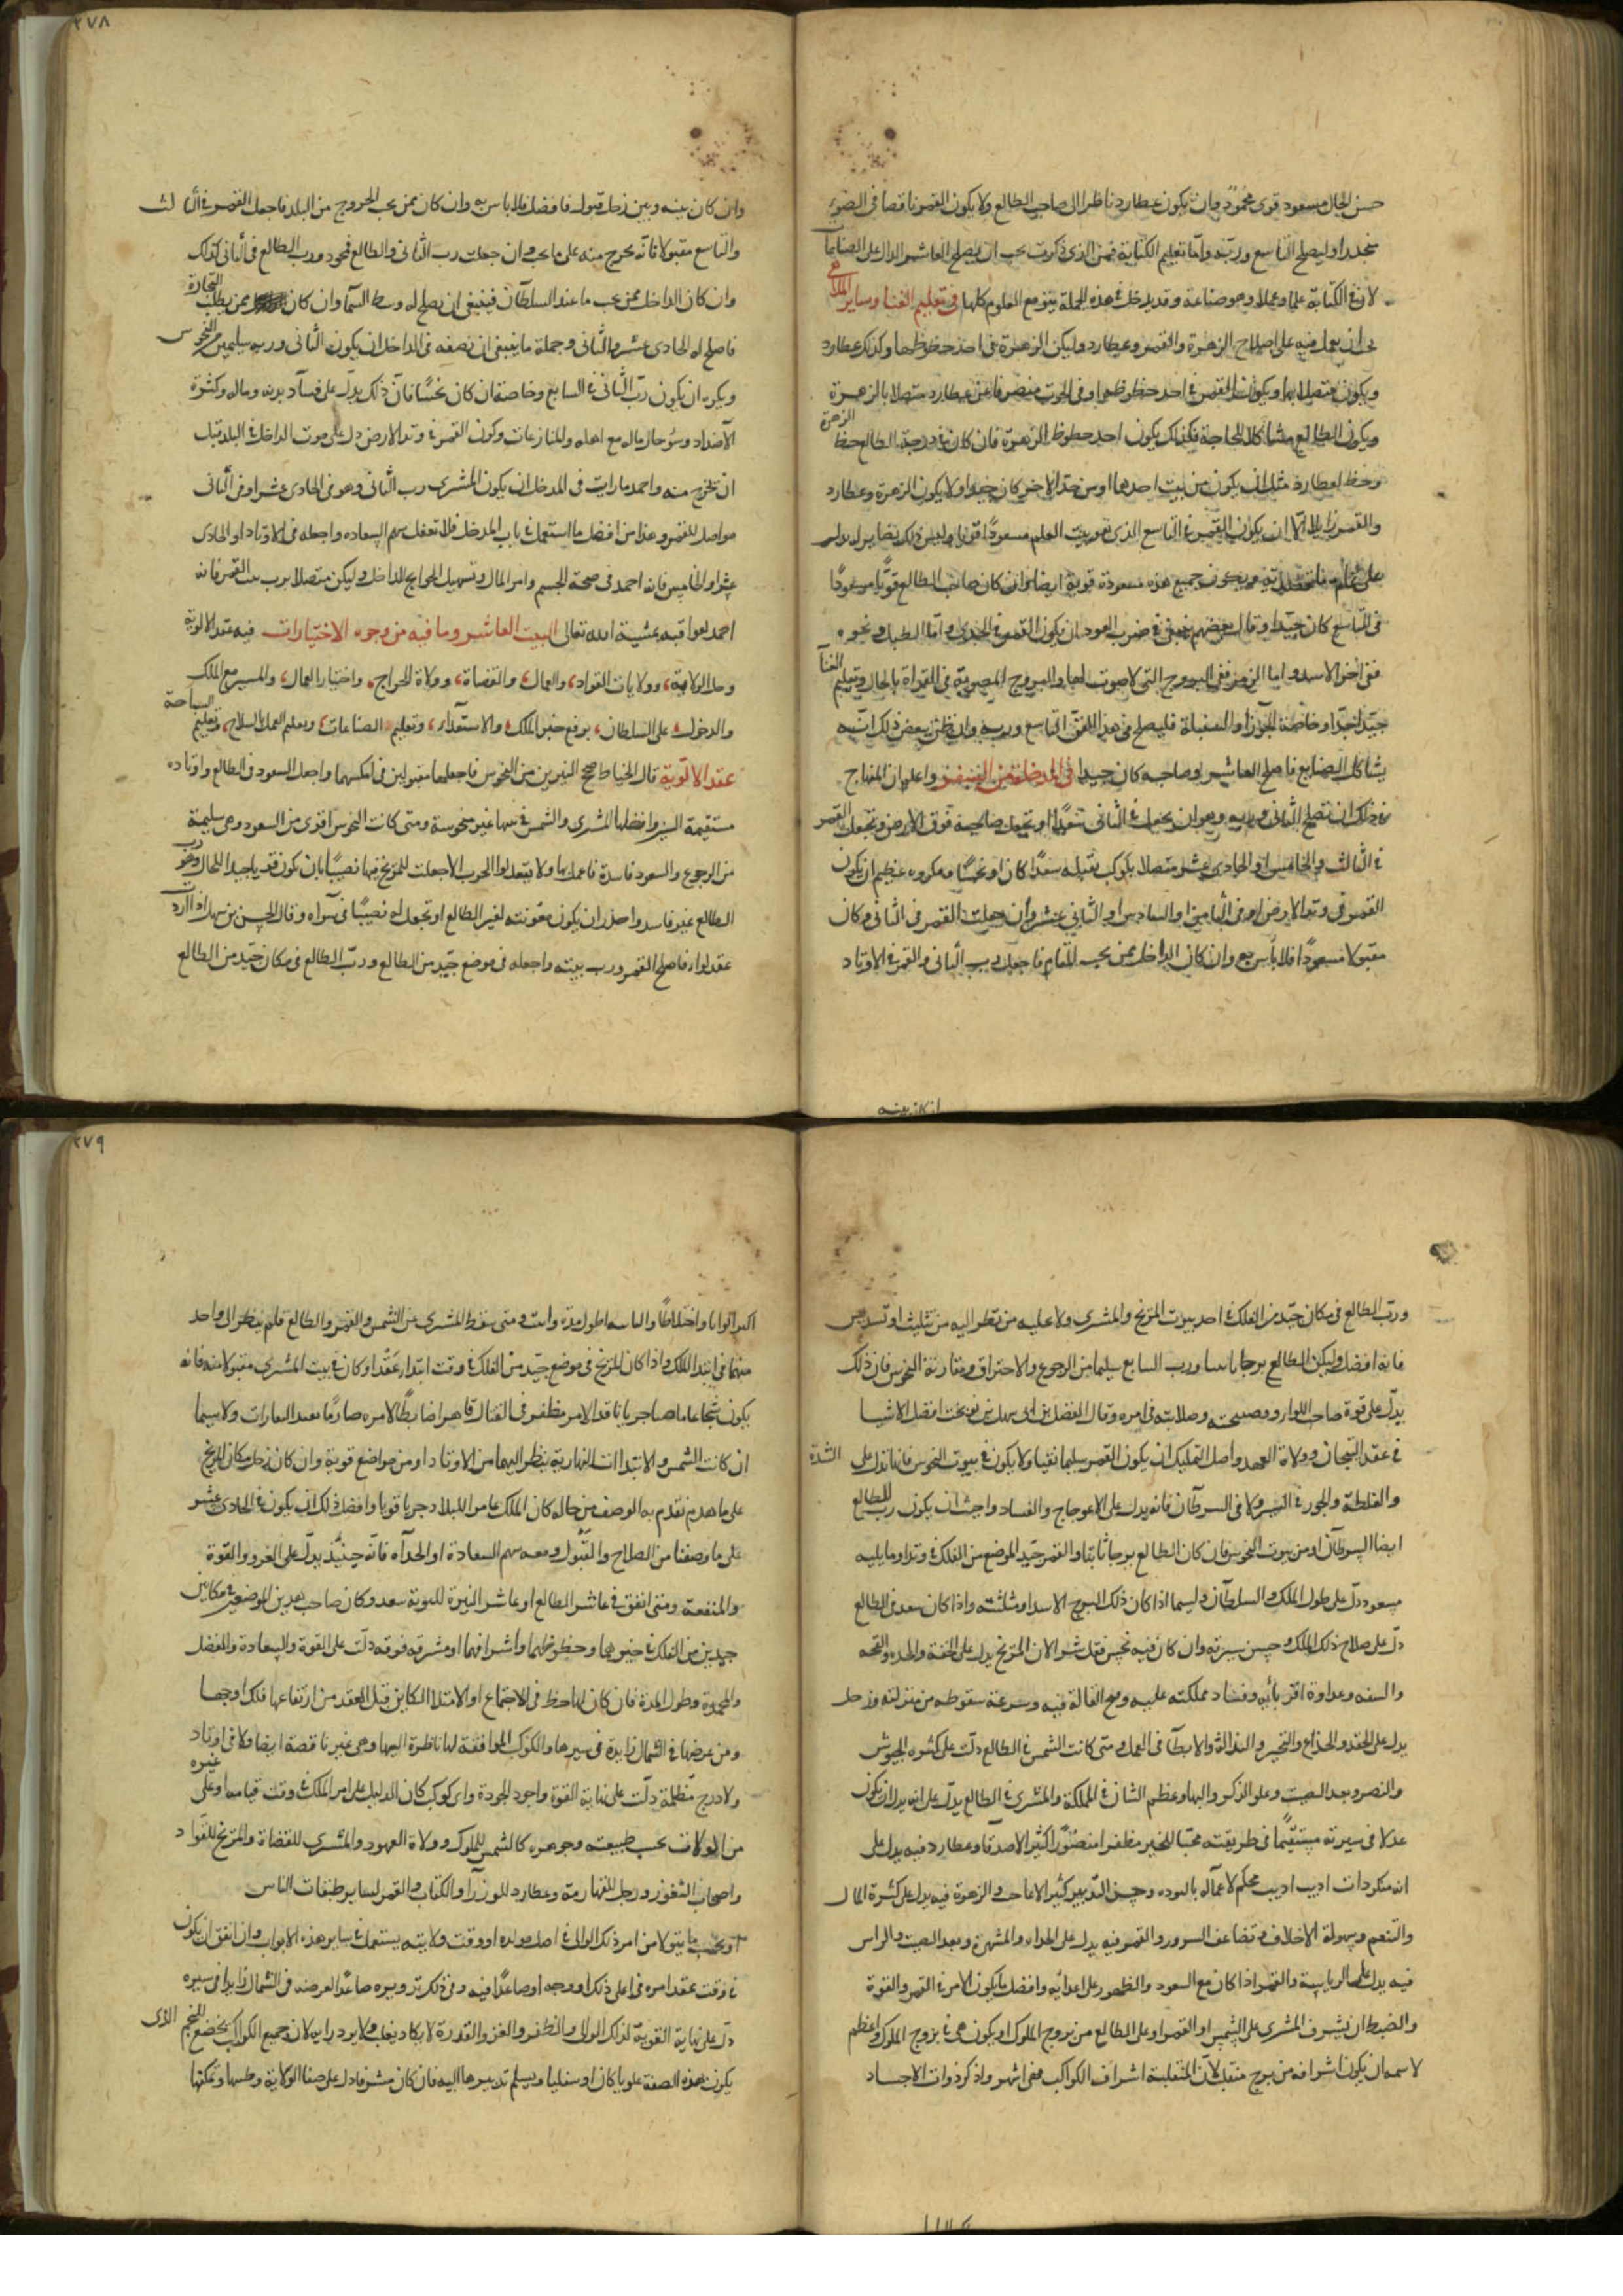 حسن الحال مسعود قوى محمود وان يكون عطارد ناظرا الى صاحب الطالع ولا يكون القمر ناقصا فى الضوء
وليصلح التاسع وربه واما تعليم الكتابة فمن الذى ذكرت يجب ان يصلح العاشر الدال على الصناعات
لان فى الكتابة علما وعملا وهو صناعة وقد يدخل فى هذه الجملة يتبع مع العلوم كلها فى تعليم الغنا وساير الملاهى
ان يعمل فيه على اصلاح الزهرة والقمر وعطارد وليكن الزهرة فى احد حظوظها وكذلك عطارد
ويكون متصلا بها ويكون القمر فى احد حظوظها وفى الحوت منصرفا عن عطارد متصلا بالزهرة
ويكون الطالع مشاكلا للحاجة وكذلك يكون احد حظوظ الزهرة فان كان فى درجة الطالع حظ الزهرة
وحظ لعطارد مثل ان يكون من بيت احدهما ومن حد الاخر كان جيدا ولا يكون الزهرة وعطارد
والقمر زايلا الا ان يكون القمر فى التاسع الذى هو بيت العلم مسعودا
ويكون جميع هذه مسعودة قوية ايضا وان كان صاحب الطالع قويا مسعودا
فى التاسع كان جيدا وقال بعضهم ينبغى فى ضرب العود ان يكون القمر فى الجدى واما الطبل ونحوه
ففى اخر الاسد واما الزمر ففى البروج التى لا صوت لها والبروج المصوتة فى القراة بالحال وتعليم الغنآ
جيد جدا وخاصة الجوزا والسنبلة فليصلح فى هذا التاسع وربه وان ظن بعض ذلك انه
يشاكل الصنايع فاصلح العاشر وصاحبه كان جيدا فى المدخل من السفر واعلم ان المنهاج
فى ذلك ان تصلح الثانى وربه وهو ان يجعل فى الثانى سعدا وتجعل صاحبه فوق الارض وتجعل القمر
فى الثالث والخامس او الحادى عشر متصلا بكوكب يقبله سعدا كان او نحسا ومكروه عظيم ان يكون
القمر فى وتد الارض او فى الثامن او السادس او الثانى عشر وان جعلت القمر فى الثانى وكان
مقبولا مسعودا فلا بأس به وان كان الداخل ممن يحب المقام فاجعل رب الثانى والقمر فى الاوتاد
ان كان بينه
٢٧٨
وان كان بينه وبين زحل قبول فافضل فلا باس به وان كان ممن يحب الخروج من البلد فاجعل القمر فى الثالث
والتاسع مقبولا فانه يخرج منه على ما يحب وان جعلت رب الثانى والطالع فمحمود ورب الطالع فى الثانى كذلك
وان كان الداخل ممن يحب ما عند السلطان فينبغى ان يصلح له وسط السمآ وان كان ممن يطلب التجارة
فاصلح له الحادى عشر والثانى وجملة ما ينبغى ان نصفه فى الداخل ان يكون الثانى وربه سليمين من النحوس
ويكره ان يكون رب الثانى فى السابع وخاصة ان كان نحسا فان ذلك يدل على فساد بدنه وماله وكثرة
الاضداد وسو حال ماله مع اهله والمنازعات وكون القمر فى وتد الارض دل على موت الداخل فى البلد قبل
ان يخرج منه واحمد ما رايت فى المدخل ان يكون المشترى رب الثانى وهو فى الحادى عشر او فى الثانى
مواصل للقمر وهذا من افضل ما استعمل فى باب المدخل فلا تغفل سهم السعاده واجعله فى الاوتاد او الحادى
عشر او الخامس فانه احمد فى صحة الجسم وامر المال وتسهيل الحوايج للداخل وليكن متصلا برب بيت القمر فانه
احمد لعواقبه بمشية الله تعالى البيت العاشر وما فيه من وجوه الاختيارات فيه عقد الالوية
وحل الولاية، وولايات القواد، والعمال، والقضاة، وولاة الخراج، واختيار العمال، والمسير مع الملك
والدخول على السلطان، برفع خبر الملك، والاستعدآء، وتعليم الصناعات، وتعليم العمل بالسلاح، وتعليم السباحة
عقد الالوية قال الخياط صح النيرين من النحوس فاجعلهما مقبولين فى امكنتهما واجعل السعود فى الطالع واوتاده
مستقيمة السير وافضلها المشترى والشمس فى بيتها غير منحوسة ومتى كانت النحوس اقوى من السعود وهى سليمة
من الرجوع والسعود فاسدة فاعمل بها ولا يعقد لوا الحرب الا جعلت للمريخ فيها نصيبا بان يكون قويا جيد الحال وهو رب
الطالع غير فاسد واحذر ان يكون معونته لغير الطالع او تجعل له نصيبا فى سواه وقال الحسن بن سهل اذا اردت
عقد لوا فاصلح القمر ورب بيته واجعله فى موضع جيد من الطالع ورب الطالع فى مكان جيد من الطالع
ورب الطالع فى مكان جيد من الفلك فى احد بيوت المريخ والمشترى ولا عليه من نظر اليه من تثليث او تسديس
فانه افضل وليكن الطالع برجا ورب السابع سليما من الرجوع والاحتراق ومقارنة النحوس فان ذلك
يدل على قوة صاحب اللوا ونصيحته وصلابته فى امره وقال الفضل بن ابى سهل بن نوبخت افضل الاشيا
فى عقد التيجان وولاة العهد واصل التمليك ان يكون القمر سليما نقيا ولا يكون فى بيوت النحوس فانها تدل على الشدة
والغلظة والجور فى السير ولا فى السرطان فانه يدل على الاعوجاج والفساد واحب ان يكون رب الطالع
ايضا السرطان او من بيوت النحوس فان كان الطالع برجا ثابتا والقمر جيد الموضع من الفلك فى وتد او ما يليه
مسعود دل على طول الملك والسلطان ولسيما اذا كان ذلك البرج الاسد او مثلثته واذا كان سعد فى الطالع
دل على صلاح ذلك الملك وحسن سيرته وان كان فيه نحس فقل شر الا ان المريخ يدل على الخفة والحده والقحه
والسفه وعداوة اقربائه وفساد مملكته عليه وسرعة سقوطه من منزلته وزحل
يدل على الحقد والخداع والتحير والنذالة والابطآ فى العمل ومتى كانت الشمس فى الطالع دلت على كثره الجيوش
والنصر وبعد الصيت وعلو الذكر والبها وعظم الشان فى المملكة والمشترى فى الطالع يدل على انه يكون
عدلا فى سيرته مستقيما فى طريقته محبا للخير مظفرا منصورا كثير الاصدقا وعطارد فيه يدل على
انه اديب محكم لاعماله وحسن التدبير كثير والزهرة فيه يدل على كثرة المال
والتنعم وسهولة الاخلاق وتضاعف السرور والقمر فيه يدل على والشهرة وبعد الصيت والراس
فيه يدل على الرياسة والقمر اذا كان مع السعود والظهور على اعدائه وافضل ما يكون الامر فى القهر والقوة
والضبط ان يشرف المشترى على الشمس او القمر او على الطالع من بروج الملوك او يكون هو فى بروج الملوك واعظم
لاسمه ان يكون اشرافه من برج منقلب لان المنقلبة اشراف الكواكب فهى اشهر واذكر ذوات الاجساد
٢٧٩
اطول مدة وابت ومتى سقط المشترى عن الشمس والقمر والطالع فلم ينظر الى واحد
منهما فى ابتدا الملك واذا كان المريخ فى موضع جيد من الفلك فى وقت ابتدا عقد او كان فى بيت المشترى مقبولا منه فانه
يكون شجاعا نافذ الامر مظفر فى القتال قاهرا ضابطا لامره صارما بعيد الغارات ولا سيما
ان كانت الشمس والابتداات النهارية ينظر اليهما من الاوتاد او من مواضع قوية وان كان زحل مكان المريخ
على ما تقدم به الوصف من حاله كان الملك عامر البلاد جريا قويا وافضل ذلك ان يكون فى الحادى عشر
على ما وصفنا من الصلاح والقبول ومعه سهم السعادة فانه حينئذ يدل على العز والقوة
والمنفعة ومتى اتفق فى عاشر الطالع او عاشر النيرة للنوبة سعد وكان صاحب هذين الموضعين فى مكانين
جيدين من الفلك فى حيزيهما وحظوظهما واشرافهما او مشرقه فوقه دلت على القوة والسعادة والفضل
والحمدة وطول المدة فان كان لها حظ فى الاجتماع او الامتلا الكاين قبل العقد من ارتفاعها فلك اوجها
ومن عرضها فى الشمال زايدة فى سيرها والكوكب الموافقة لها ناظرة اليها وهى غير ناقصة ايضا ولا فى اوتاد
ولا درج مظلمة دلت على نهاية القوة واجود الجودة واى كوكب كان الدليل على امر الملك فى وقت قيامه او على غيره
من الولات بحسب طبيعته وجوهره كالشمس للملوك وولاة العهود والمشترى للقضاة والمريخ للقواد
واصحاب الثغور وزحل للقهارمة وعطارد للوزرآ والكتاب والقمر لساير طبقات الناس
او بحسب ما يتولا من امر ذلك الوالى فى اصل مولده او وقت ولايته يستعمل فى ساير هذه الابواب وان اتفق ان يكون
فى وقت عقد امره فى اعلى ذلك اوجه او صاعدا فيه وفى فلك تدويره صاعدا لعرضه فى الشمال زايدا فى سيره
دل على نهاية القوية لذلك الوالى والظفر والعز والقدرة لا يكاد يغلب ولا يرد رايه لان جميع الكواكب يخضع للنجم الذى
يكون بهذه الصفة علويا كان او سفليا ويسلم تدبيرها اليه فان كان مشرقا دل على صفا الولاية